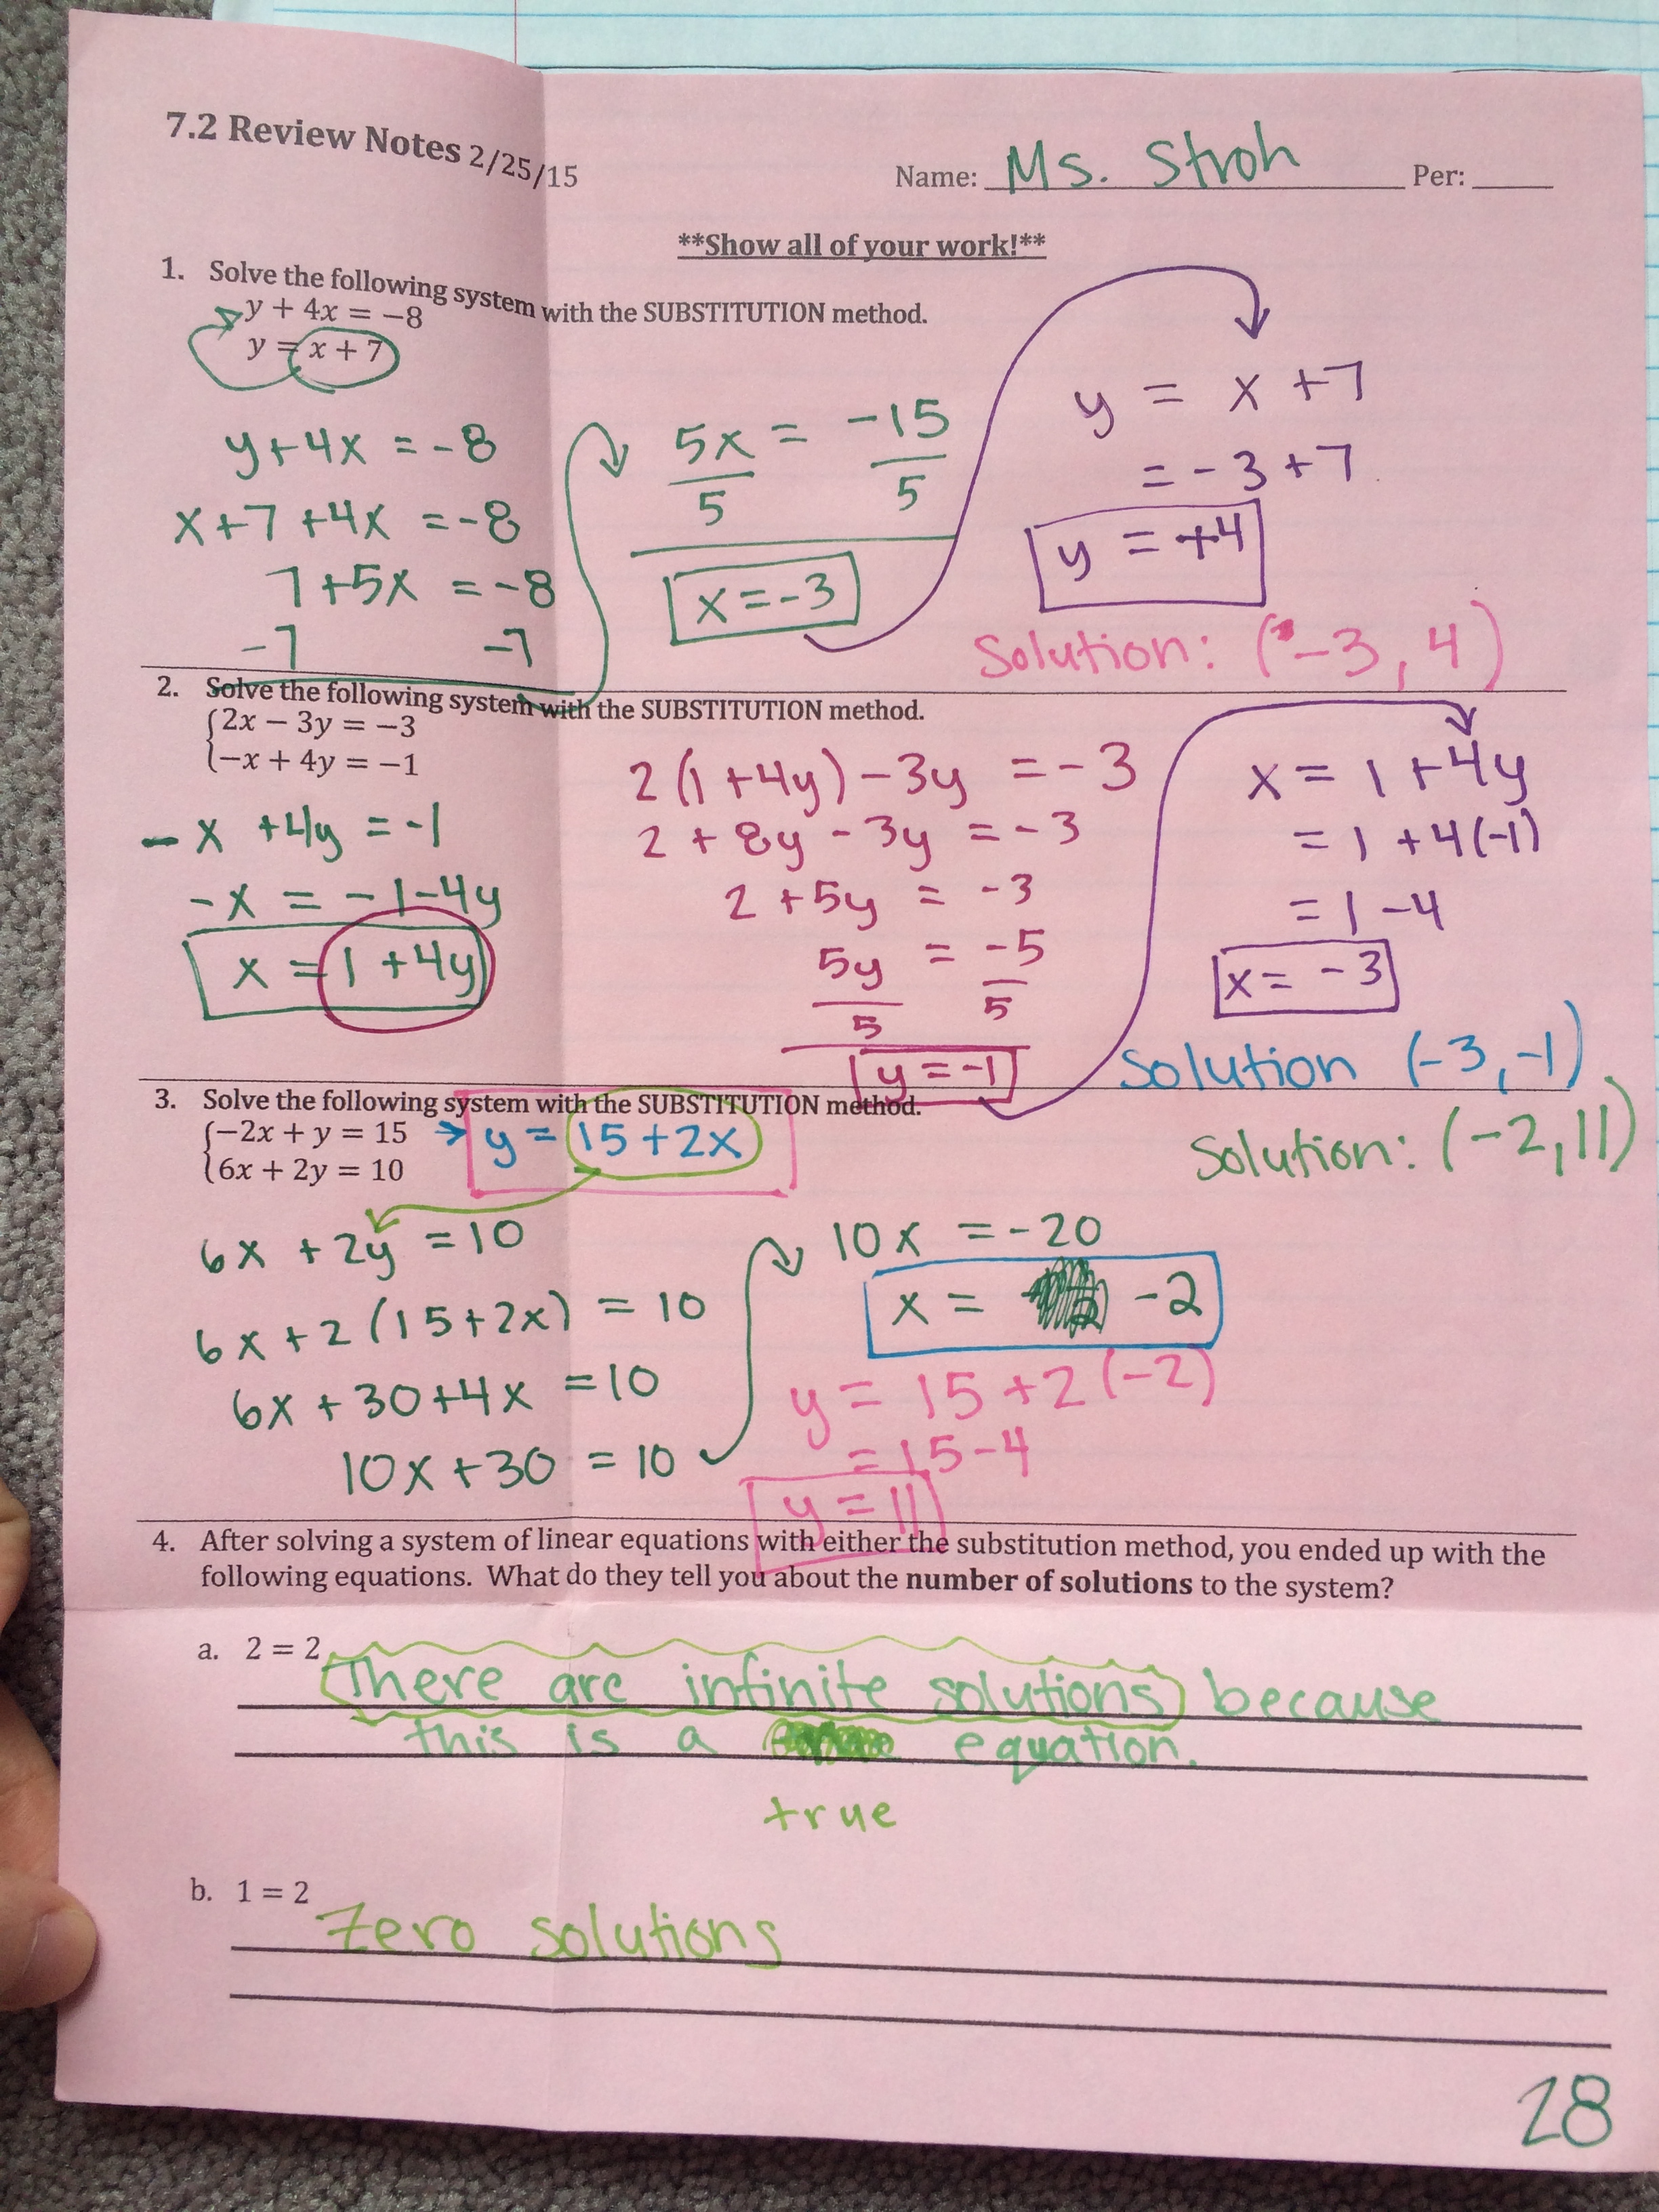 7.2 Review Notes 2/25/15
Name: Ms. Stroh Per:
**Show all of your work!**
1. Solve the following system with the SUBSTITUTION method.
y + 4x = −8
y = x + 7
y+4x = -8
x+7+4x = -8
7+5x = -8
-7 -7
5x = -15
5 5
x = -3
y = x +7
= -3 +7
y = +4
Solution: (-3, 4)
2. Solve the following system with the SUBSTITUTION method.
{2x − 3y = −3
{−x + 4y = −1
-x +4y = -1
-x = -1-4y
x = 1 +4y
2(1+4y) -3y = -3
2 + 8y - 3y = -3
2 +5y = -3
5y = -5
5 5
y = -1
x = 1 +4y
= 1 +4(-1)
= 1 -4
x = -3
Solution (-3, -1)
3. Solve the following system with the SUBSTITUTION method.
{−2x + y = 15 → y = 15+2x
{6x + 2y = 10
Solution: (-2, 11)
6x +2y = 10
6x +2(15+2x) = 10
6x +30+4x = 10
10x+30 = 10
10x = -20
x = -2
y = 15+2(-2)
= 15-4
y = 11
4. After solving a system of linear equations with either the substitution method, you ended up with the
following equations. What do they tell you about the number of solutions to the system?
a. 2 = 2
There are infinite solutions because
this is a equation.
true
b. 1 = 2
Zero solutions
28